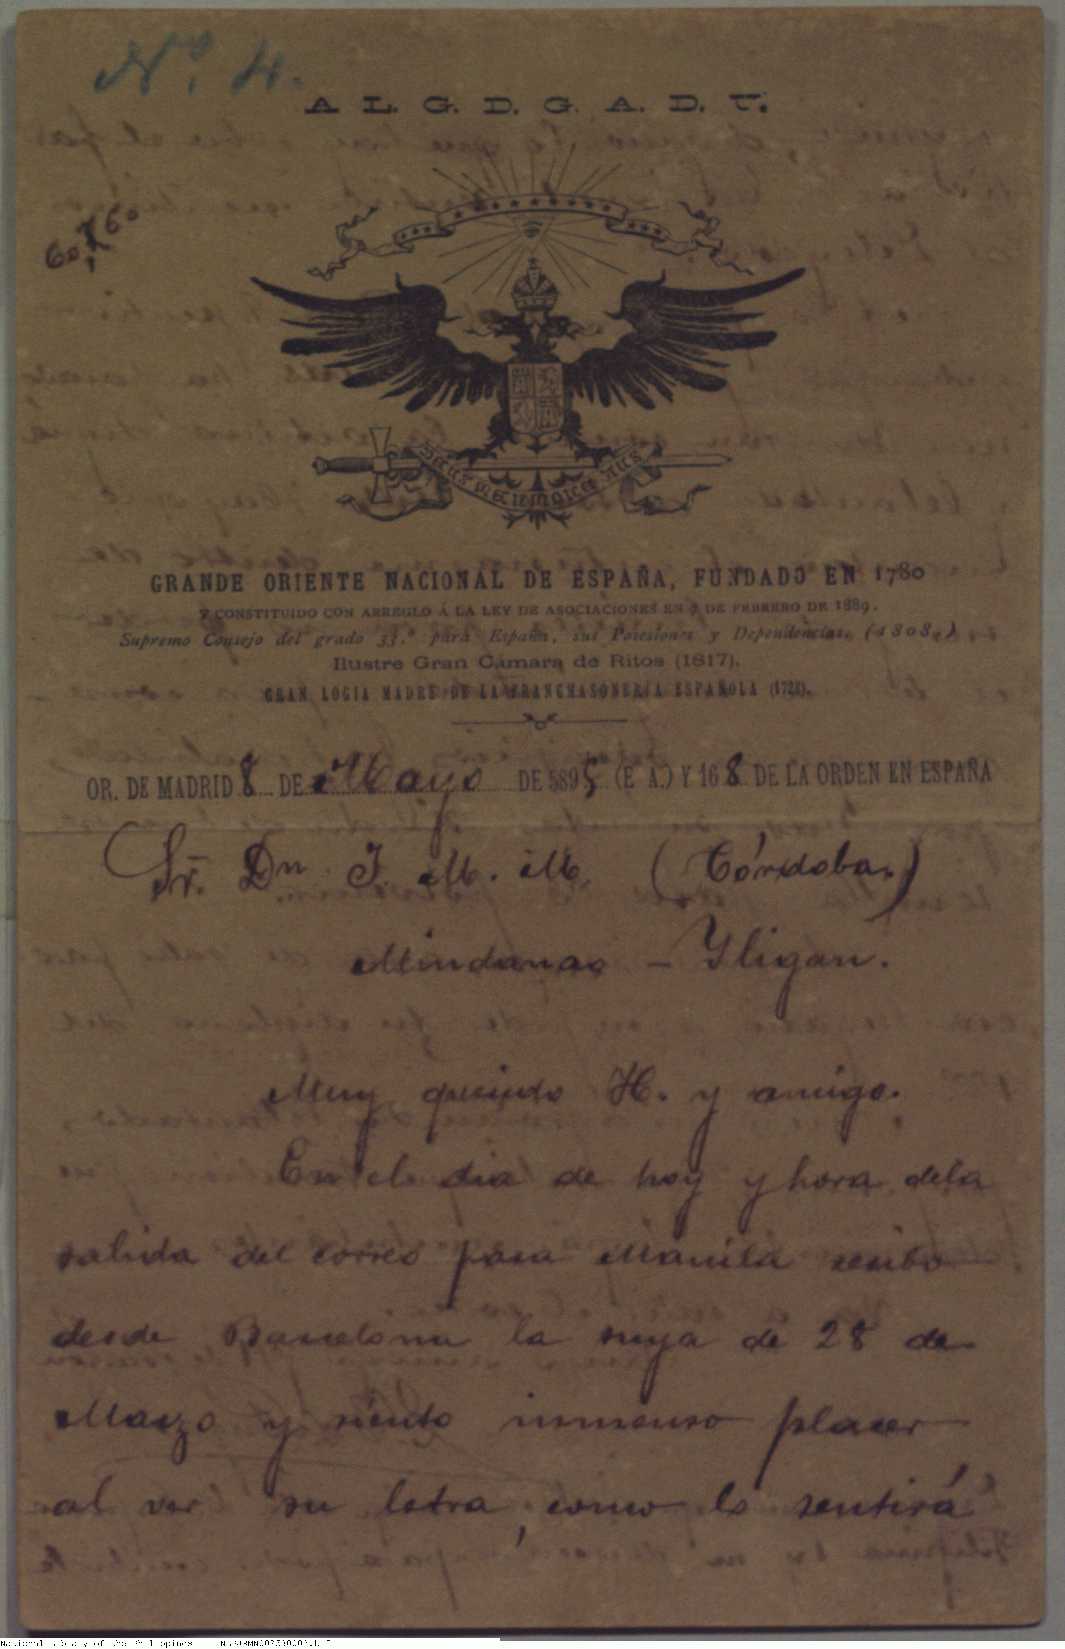 Nº. 4.
A L. G. D. G. A. D. U.
GRANDE ORIENTE NACIONAL DE ESPAÑA, FUNDADO EN 1780
Y CONSTITUIDO CON ARREGLO Á LA LEY DE ASOCIACIONES EN 7 DE FEBRERO DE 1889.
Supremo Consejo del grado 33.º para España, sus Posesiones y Dependencias, (1808.)
Ilustre Gran Cámara de Ritos (1817).
GRAN LOGIA MADRE DE LA FRANCMASONERÍA ESPAÑOLA
OR. DE MADRID 8 DE Mayo DE 5895 (E A.) Y 168 DE LA ORDEN EN ESPAÑA
Sr. Dn J. M. M. (Córdoba.)
Mindanao - Yligan.
Muy querido H. y amigo.
En el dia de hoy y hora dela
salida del correo para Manila recibo
desde Barcelona la suya de 28 de
Marzo y siento inmenso placer
al ver su letra, como lo sentirá
National Library of the Philippines